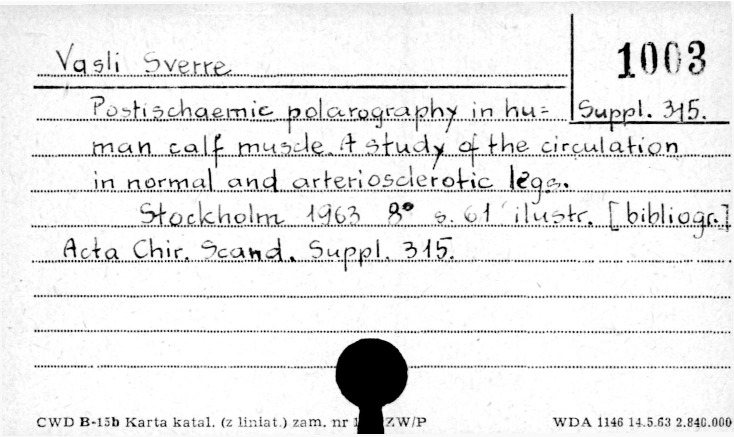 Vasli Sverre
1003
Suppl. 315.
Postischaemic polarography in hu=
man calf muscle. A study of the circulation
in normal and arteriosclerotic legs.
Stockholm 1963 8° s. 61 ilustr. [bibliogr.]
Acta Chir. Scand. Suppl. 315.
CWD B-15b Karta katal. (z liniat.) zam. nr ZW/P
WDA 1146 14.5.63 2.840.000